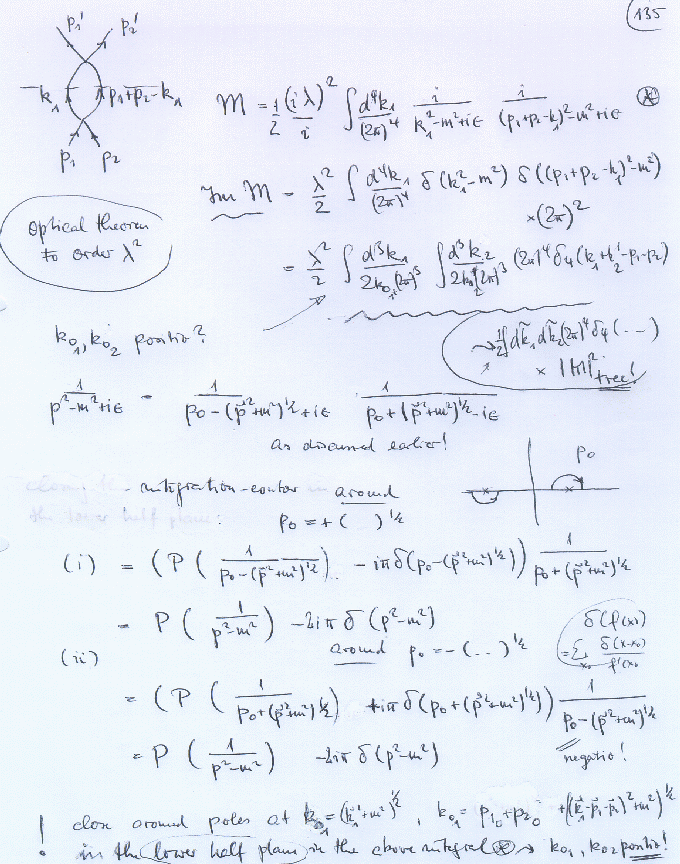 135
p₁' p₂'
k₁ p₁+p₂-k₁
p₁ p₂
M = 1/2 (iλ)²/i ∫ d⁴k₁/(2π)⁴ i/(k₁²-m²+iε) i/((p₁+p₂-k₁)²-m²+iε) ⊛
Im M = λ²/2 ∫ d⁴k₁/(2π)⁴ δ(k₁²-m²) δ((p₁+p₂-k₁)²-m²)
×(2π)²
optical theorem
to order λ²
= λ²/2 ∫ d³k₁/(2k₀₁(2π)³) ∫ d³k₂/(2k₀₂(2π)³) (2π)⁴ δ₄(k₁+k₂-p₁-p₂)
k₀₁, k₀₂ positiv?
→ 1/2 ∫ dk̃₁ dk̃₂ (2π)⁴ δ₄(...)
× |M|² tree!
1/(p²-m²+iε) = 1/(p₀-(p⃗²+m²)^½+iε) 1/(p₀+(p⃗²+m²)^½-iε)
as discussed earlier!
p₀
the lower half plane:
integration-contor around
p₀ = + ( )^½
(i) = (P ( 1/(p₀-(p⃗²+m²)^½) ) - iπδ(p₀-(p⃗²+m²)^½)) 1/(p₀+(p⃗²+m²)^½)
= P ( 1/(p²-m²) ) - 2iπ δ(p²-m²)
δ(f(x))
= Σ δ(x-x₀)/f'(x₀)
(ii) around p₀ = -(..)^½
= (P ( 1/(p₀+(p⃗²+m²)^½) ) + iπδ(p₀+(p⃗²+m²)^½)) 1/(p₀-(p⃗²+m²)^½)
= P ( 1/(p²-m²) ) - 2iπ δ(p²-m²)
negativ!
! close around poles at k₀₁=(k⃗₁²+m²)^½, k₀₁= p₁₀+p₂₀ +((k⃗₁-p⃗₁-p⃗₂)²+m²)^½
in the lower half plane in the above integral ⊛ → k₀₁, k₀₂ positiv!